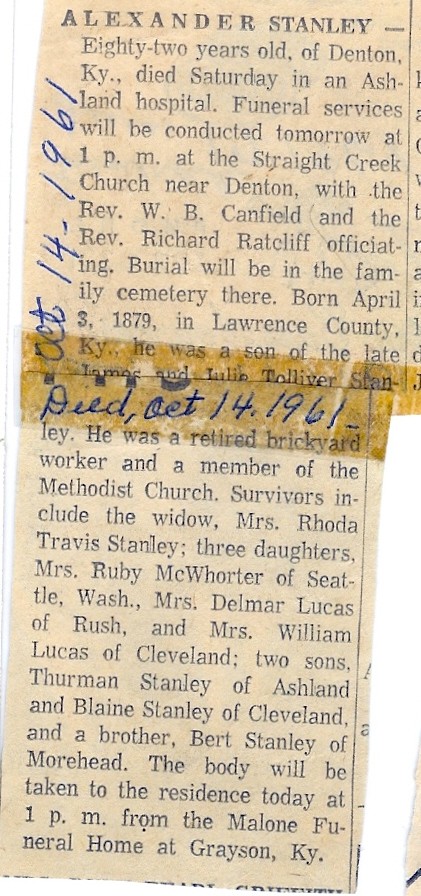 ALEXANDER STANLEY —
Eighty-two years old, of Denton,
Ky., died Saturday in an Ash-
land hospital. Funeral services
will be conducted tomorrow at
1 p. m. at the Straight Creek
Church near Denton, with the
Rev. W. B. Canfield and the
Rev. Richard Ratcliff officiat-
ing. Burial will be in the fam-
ily cemetery there. Born April
3, 1879, in Lawrence County,
Ky., he was a son of the late
James and Julie Tolliver Stan-
Died, Oct 14. 1961-
ley. He was a retired brickyard
worker and a member of the
Methodist Church. Survivors in-
clude the widow, Mrs. Rhoda
Travis Stanley; three daughters,
Mrs. Ruby McWhorter of Seat-
tle, Wash., Mrs. Delmar Lucas
of Rush, and Mrs. William
Lucas of Cleveland; two sons,
Thurman Stanley of Ashland
and Blaine Stanley of Cleveland,
and a brother, Bert Stanley of
Morehead. The body will be
taken to the residence today at
1 p. m. from the Malone Fu-
neral Home at Grayson, Ky.
Oct 14-1961